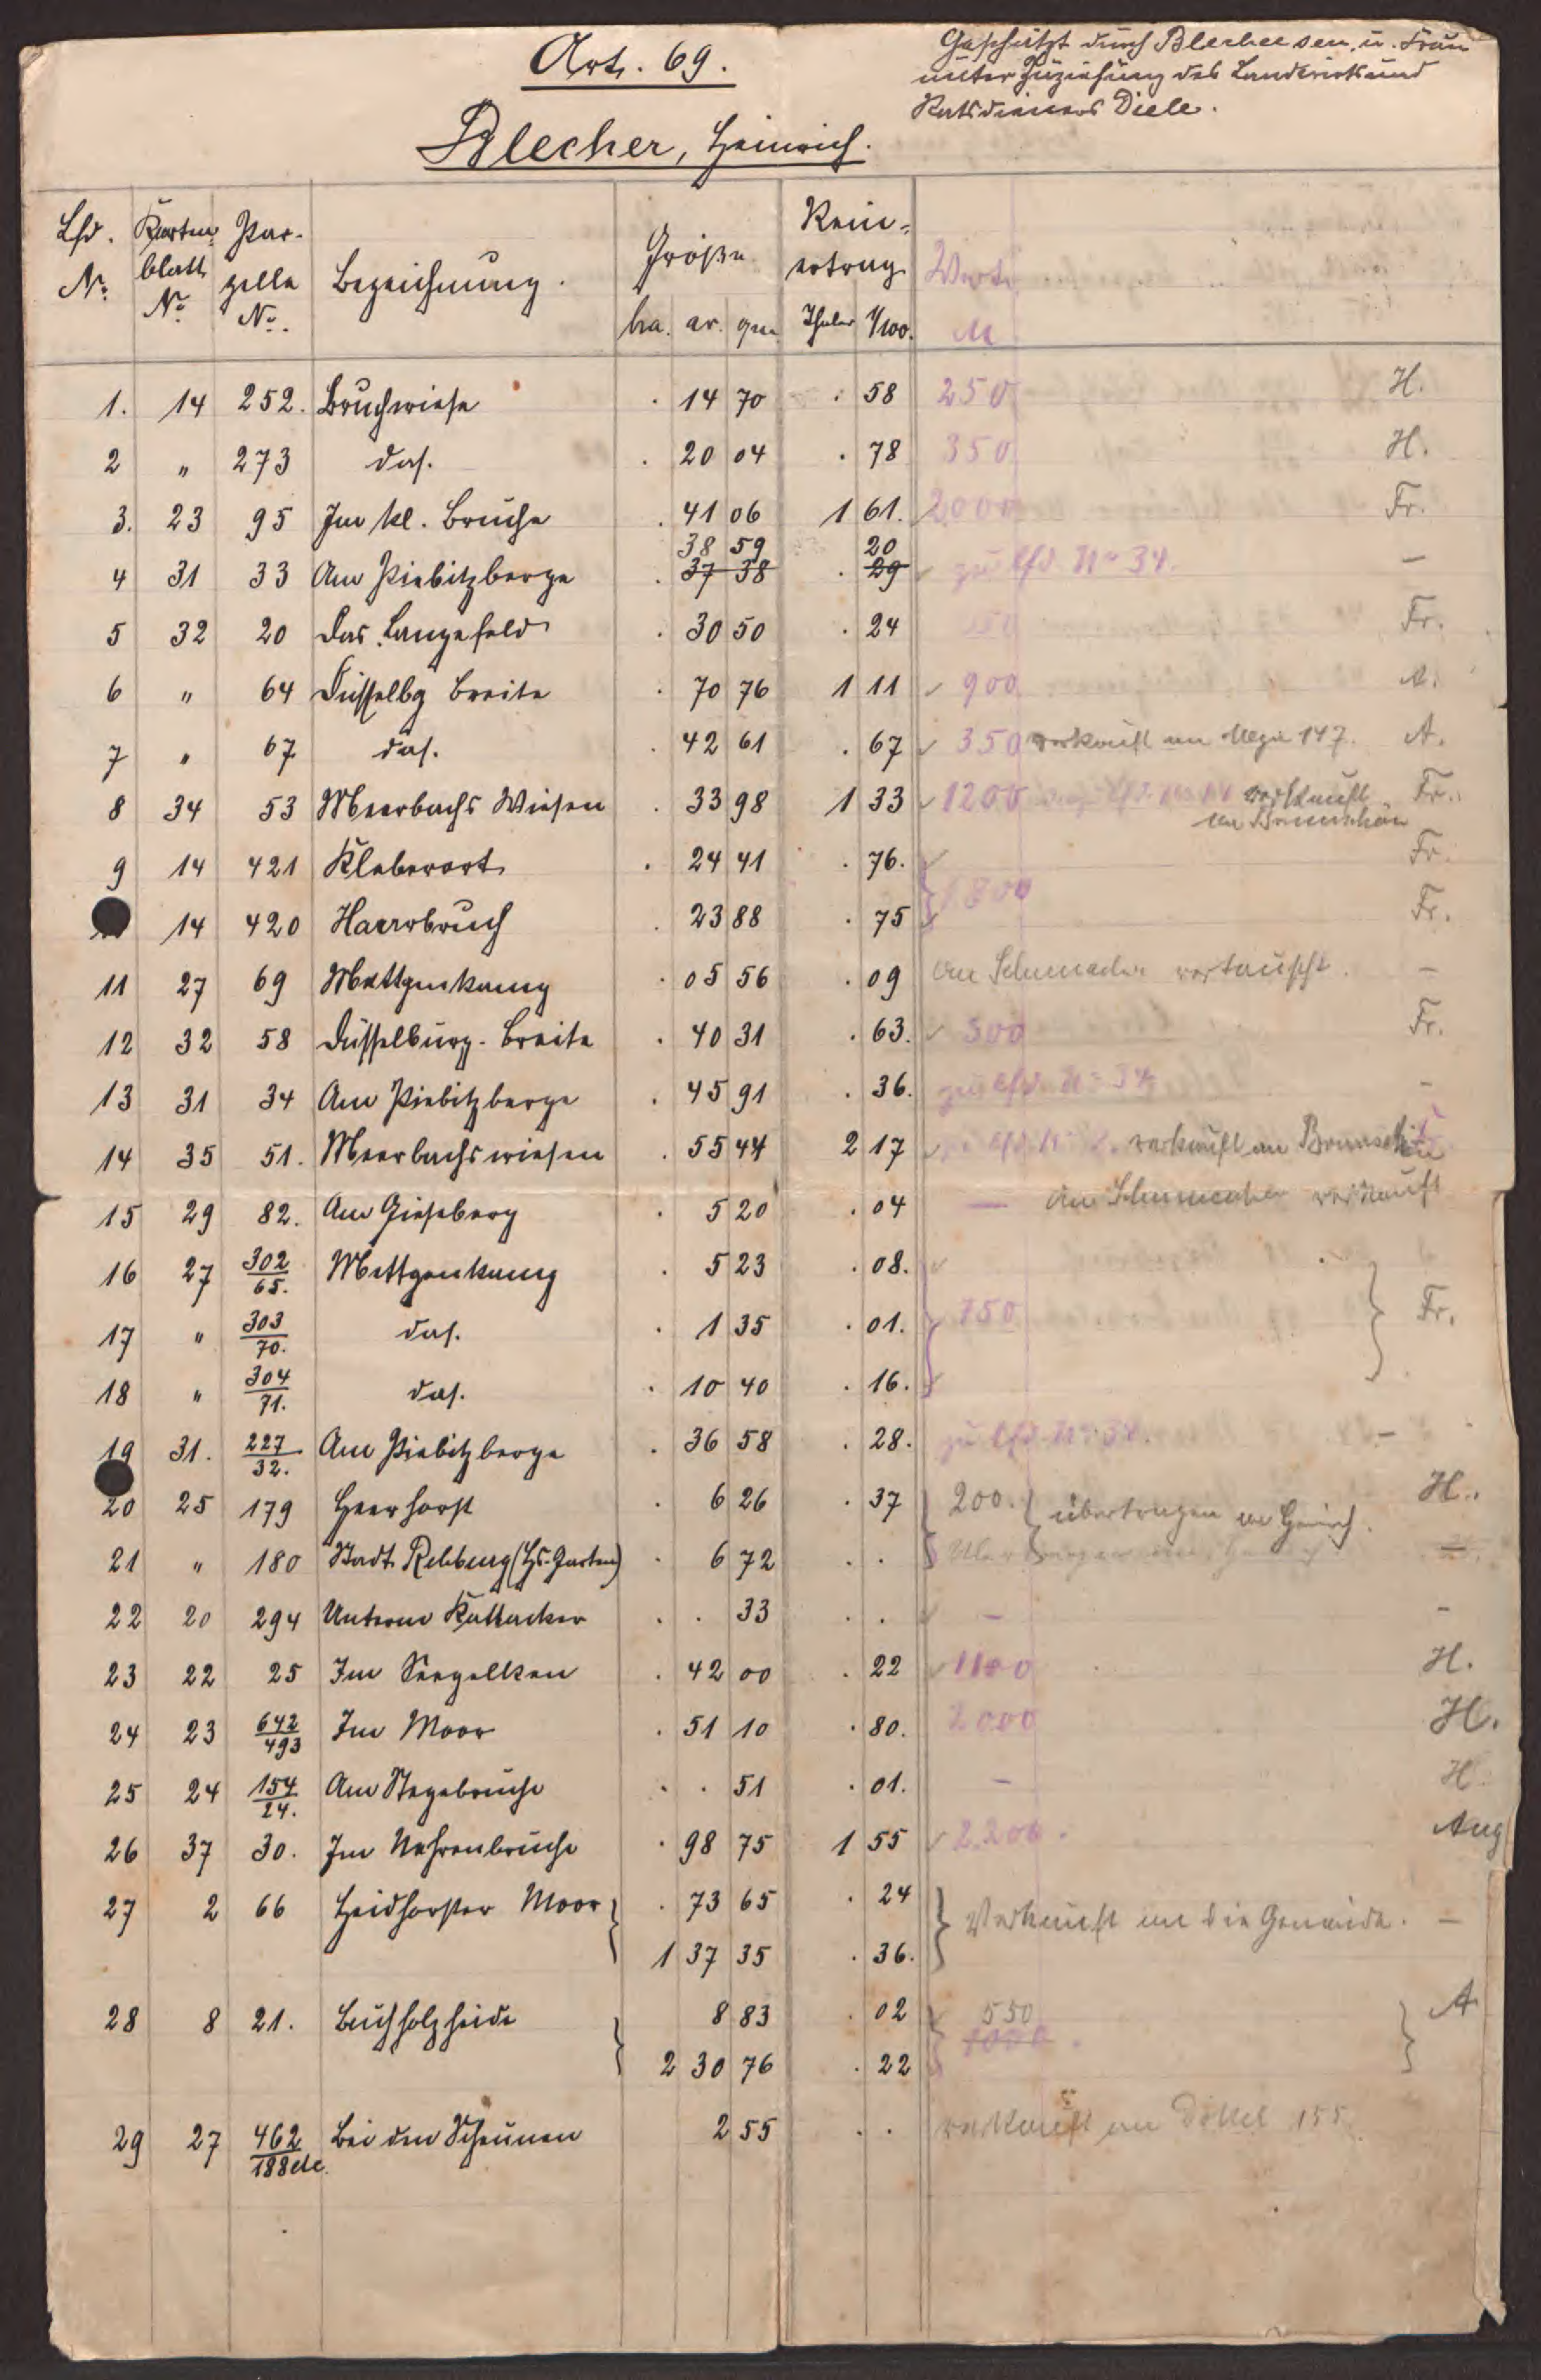 Geschätzt durch Blecher sen. u. Frau
unter Zuziehung des Landwirts und
Ratsdieners Diele.
Art. 69.
Blecher, Heinrich.
Lfd. N° Karten blatt N° Par- zelle N° Bezeichnung. Größe ha. ar. qm Rein- ertrag Thaler 1/100. Wert M
1. 14 252. Bruchwiese . 14 70 . 58 250 H.
2 " 273 das. . 20 04 . 78 350 H.
3. 23 95 Im kl. Bruche . 41 06 1 61. 2000 Fr.
38 59 20
4 31 33 Am Kiebitzberge . 37 38 . 29 zu lfd N° 34. –
5 32 20 Das Langefeld . 30 50 . 24 Fr.
6 " 64 Düsselbg Breite . 70 76 1 11 900 A.
7 " 67 das. . 42 61 . 67 350 verkauft an 147. A.
8 34 53 Meerbachs Wiesen . 33 98 1 33 1200 verkauft Fr.
an
9 14 421 Kleberort . 24 41 . 76. Fr.
1800
14 420 Haarbruch . 23 88 . 75 Fr.
11 27 69 Mettgenkamp . 05 56 . 09 an Schumacher vertauscht. –
12 32 58 Düsselburg-Breite . 40 31 . 63. 500 Fr.
13 31 34 Am Kiebitzberge . 45 91 . 36. zu lfd N° 34 –
14 35 51. Meerbachswiesen . 55 44 2 17 verkauft an
15 29 82. Am Gieseberg . 5 20 . 04 – an Schumacher verkauft
16 27 302/65. Mettgenkamp . 5 23 . 08.
17 " 303/70. das. . 1 35 . 01. 750 Fr.
18 " 304/71. das. . 10 40 . 16.
19 31. 227/32. Am Kiebitzberge . 36 58 . 28. zu lfd N° 34. –
20 25 179 Heerhorst . 6 26 . 37 200. übertragen an Heinrich. H.
21 " 180 Stadt Rehburg (Hs. Garten) . 6 72 . .
22 20 294 Unterm Kattacker . . 33 . . – –
23 22 25 Im Seegelken . 42 00 . 22 1100 H.
24 23 642/493 Im Moor . 51 10 . 80. 2000 H.
25 24 154/24. Am Stegebruche . . 51 . 01. – H.
26 37 30. Im Nehrenbruche . 98 75 1 55 2200. Aug
27 2 66 Heidhorster Moor . 73 65 . 24
Verkauft an die Gemeinde. –
1 37 35 . 36.
28 8 21. Buchholzheide 8 83 . 02 550 A
1000.
2 30 76 . 22
29 27 462/188 etc. Bei den Scheunen 2 55 . . verkauft an Döttel 155.